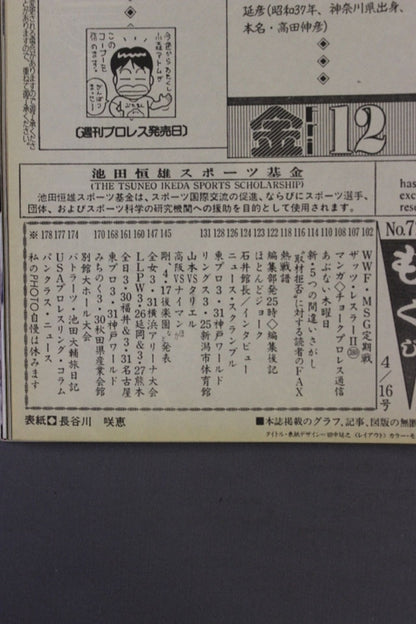 延彦(昭和37年、神奈川県出身、
本名・高田伸彦)
【週刊プロレス発売日】
金
Fri
12
池田恒雄スポーツ基金
(THE TSUNEO IKEDA SPORTS SCHOLARSHIP)
池田恒雄スポーツ基金は、スポーツ国際交流の促進、ならびにスポーツ選手、
団体、およびスポーツ科学の研究機関への援助を目的として使用されます。
No.7
もくじ
4/16号
102 WWF・MSG定期戦
107 ザッツ・レスラーⅡ
108 マンガ◇チョークプロレス通信
114 新・5つの間違いさがし
110 あぶない木曜日
116 "取材拒否"に対する読者のFAX
114 熱戦譜
118 編集部発25時◇編集後記
122 ほとんどジョーク
127 石井館長/インタビュー
128 ニュース・スクランブル
131 リングス3・25新潟市体育館
東プロ3・31神戸ワールド
山本VSタリエル
高阪VSナイマン
145 剛4・17後楽園で発表
147 全女3・31横浜アリーナ大会
160 LLPW3・26延岡&3・27熊本
161 全日3・30福井&3・31名古屋
166 東プロ3・31神戸ワールド
168 みちのく3・30秋田県産業会館
170 別館大ホール大会
174 バトラーツ/池田大輔旅日記
177 USAプロレスリング・コラム
178 パンクラス・ニュース
※ 私のPHOTO自慢は休みます
表紙◆長谷川 咲恵
■本誌掲載のグラフ、記事、図版の無断